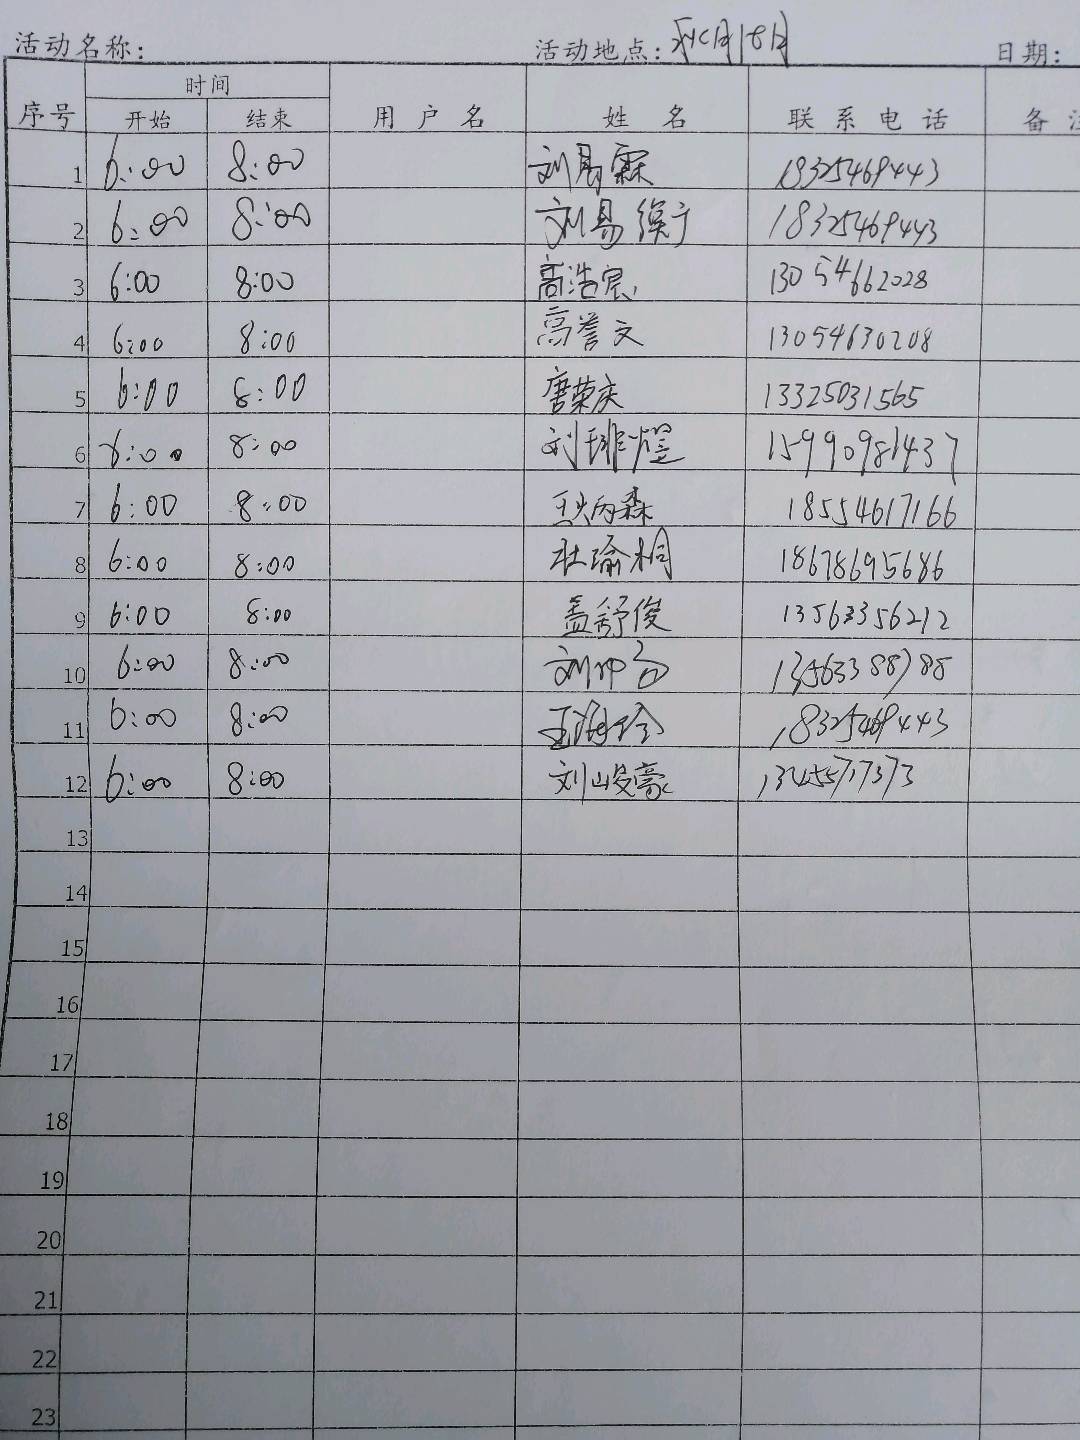 活动名称: 活动地点: 日期:
序号 时间 用户名 姓名 联系电话 备
开始 结束
1 6:00 8:00 刘易霖 18325469443
2 6:00 8:00 刘易 18325469443
3 6:00 8:00 高浩宸 13054662028
4 6:00 8:00 高誉文 13054630208
5 6:00 8:00 唐荣庆 13325031565
6 8:00 8:00 15990981437
7 6:00 8:00 王炳森 18554617166
8 6:00 8:00 杜瑜桐 18678695686
9 6:00 8:00 盖舒俊 13563356212
10 6:00 8:00 13563388788
11 6:00 8:00 18325469443
12 6:00 8:00 刘峻豪
13
14
15
16
17
18
19
20
21
22
23